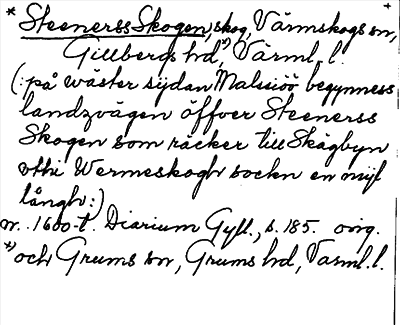 * Steenerss Skogen, skog, Värmskogs sn,
Gillbergs hd *), Värml. l.
(: på wäster sijdan Malsiöö begynness
landzvägen öffver Steenerss
Skogen som räcker till Skägbyn
uthi Wermeskogh sockn en mijl
långh :)
m. 1600-t. Diarium Gyll., s. 185. orig.
*) och Grums sn, Grums hd, Värml. l.